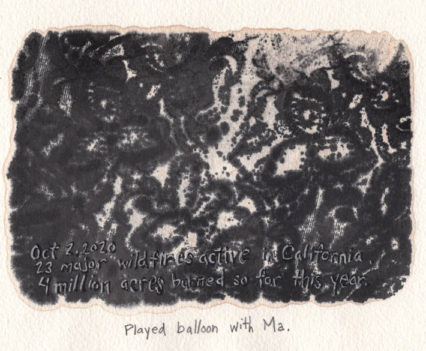 Oct 2, 2020
23 major wildfires active in California.
4 million acres burned so far this year.
Played balloon with Ma.